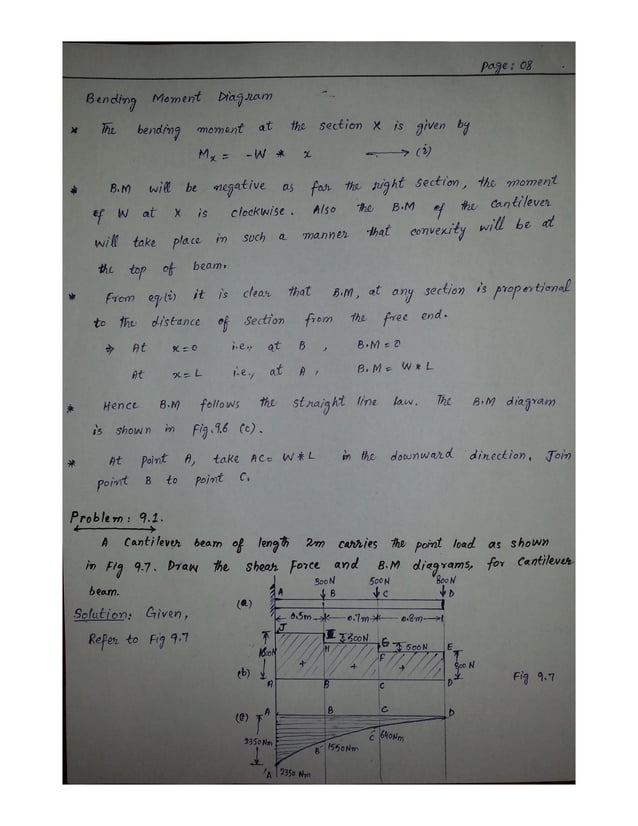 Page: 08
Bending Moment Diagram
* The bending moment at the section X is given by
Mx = -W * x → (i)
* B.M will be negative as for the right section, the moment
of W at X is clockwise. Also the B.M of the Cantilever
will take place in such a manner that convexity will be at
the top of beam.
* From eq(i) it is clear that B.M, at any section is proportional
to the distance of Section from the free end.
⇒ At x=0 i.e., at B , B.M = 0
At x=L i.e., at A , B.M = W*L
* Hence B.M follows the straight line law. The B.M diagram
is shown in Fig.9.6 (c).
* At Point A, take AC= W*L in the downward direction. Join
point B to point C.
Problem: 9.1.
A Cantilever beam of length 2m carries the point load as shown
in Fig 9.7. Draw the shear Force and B.M diagrams, for Cantilever
beam.
Solution: Given,
Refer to Fig 9.7
300N 500N 800N
A B C D
(a)
0.5m 0.7m 0.8m
J 300N G 500N E
H F
1600N + + + 800N
(b) A B C D
Fig 9.7
(c) A B C D
2350Nm
B' 1550Nm C' 640Nm
'A 2350 Nm